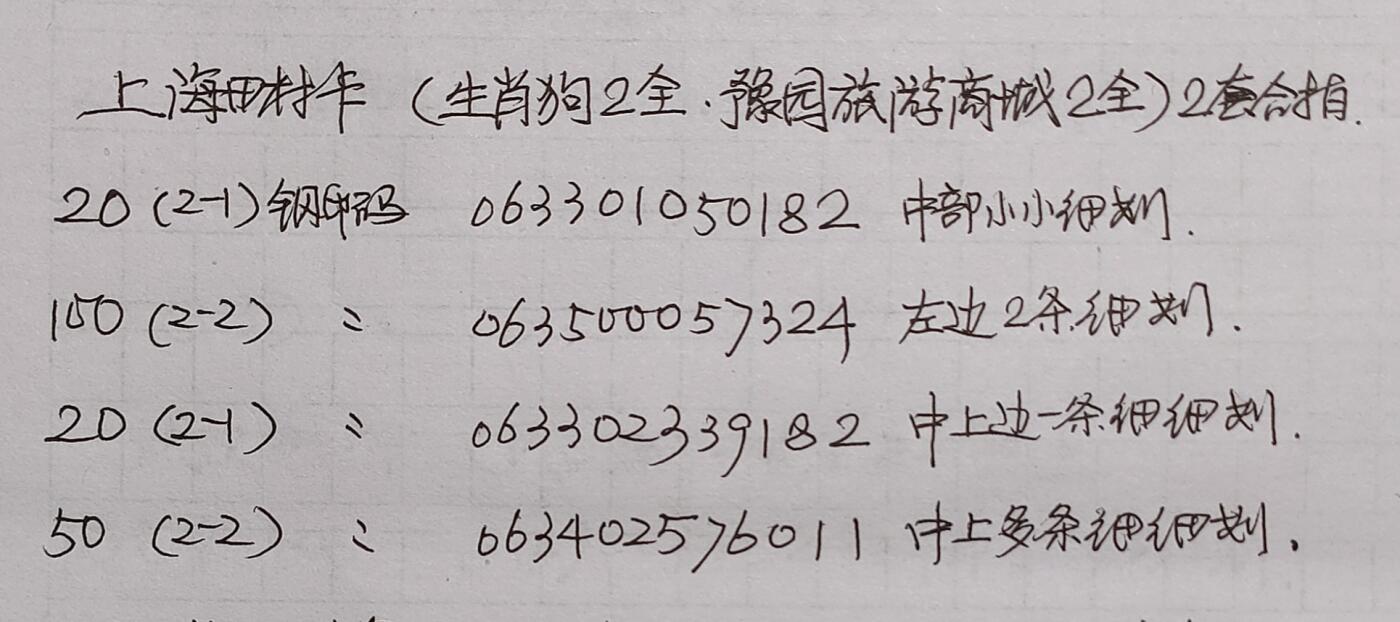 上海田村卡（生肖狗2全.豫园旅游商城2全）2套合拍.
20（2-1）钢印码 063301050182 中部小小细划.
100（2-2） 〃 063500057324 左边2条细划.
20（2-1） 〃 063302339182 中上边一条细细划.
50（2-2） 〃 063402576011 中上多条细细划.